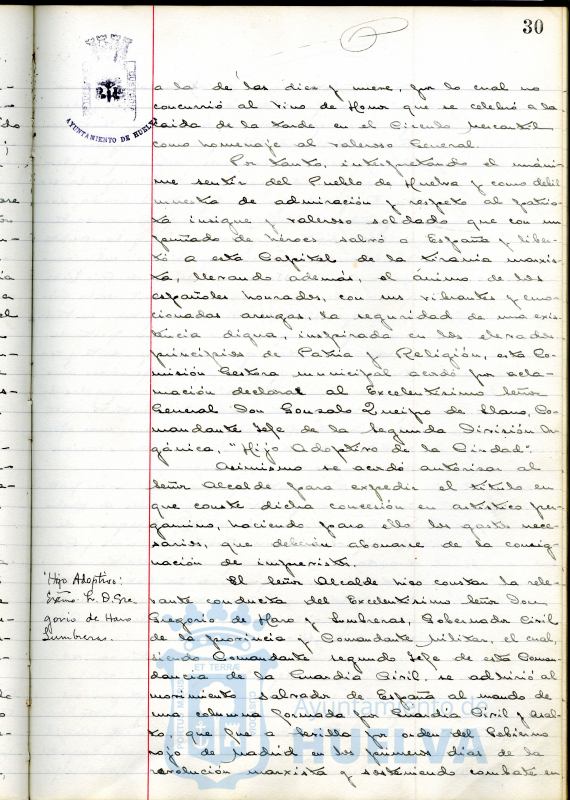 30
AYUNTAMIENTO DE HUELVA
a la de las diez y nueve, por lo cual no
concurrió al Vino de Honor que se celebró a la
caida de la tarde en el Círculo Mercantil
como homenaje al valeroso General.
Por tanto, interpretando el unáni-
me sentir del Pueblo de Huelva y como debil
muestra de admiración y respeto al patrio-
ta insigne y valeroso soldado que con un
puñado de héroes salvó a España y liber-
tó a esta Capital de la tirania marxis-
ta, llevando además, al ánimo de los
españoles honrados, con sus vibrantes y emo-
cionadas arengas, la seguridad de una exis-
tencia digna, inspirada en los elevados
principios de Patria y Religión, esta Co-
misión Gestora municipal acordó por acla-
mación declarar al Excelentísimo Señor
General Don Gonzalo Queipo de Llano, Co-
mandante Jefe de la Segunda División Or-
gánica, "Hijo Adoptivo de la Ciudad".
Asimismo se acordó autorizar al
Señor Alcalde para expedir el título en
que conste dicha concesión en artístico per-
gamino, haciendo para ello los gastos nece-
sarios, que deberán abonarse de la consig-
nación de imprevistos.
"Hijo Adoptivo:
Excmo. Sr. D. Gre-
gorio de Haro
Lumbreras.
El Señor Alcalde hizo constar la rele-
vante conducta del Excelentísimo Señor Don
Gregorio de Haro y Lumbreras, Gobernador Civil
de la provincia y Comandante Militar, el cual,
siendo Comandante segundo Jefe de esta Coman-
dancia de la Guardia Civil, se adhirió al
movimiento salvador de España al mando de
una columna formada por Guardia Civil y Asal-
to, que fue a Sevilla por orden del Gobierno
rojo de Madrid en los primeros dias de la
revolución marxista y sosteniendo combate en
ET TERRAE
Ayuntamiento de
HUELVA